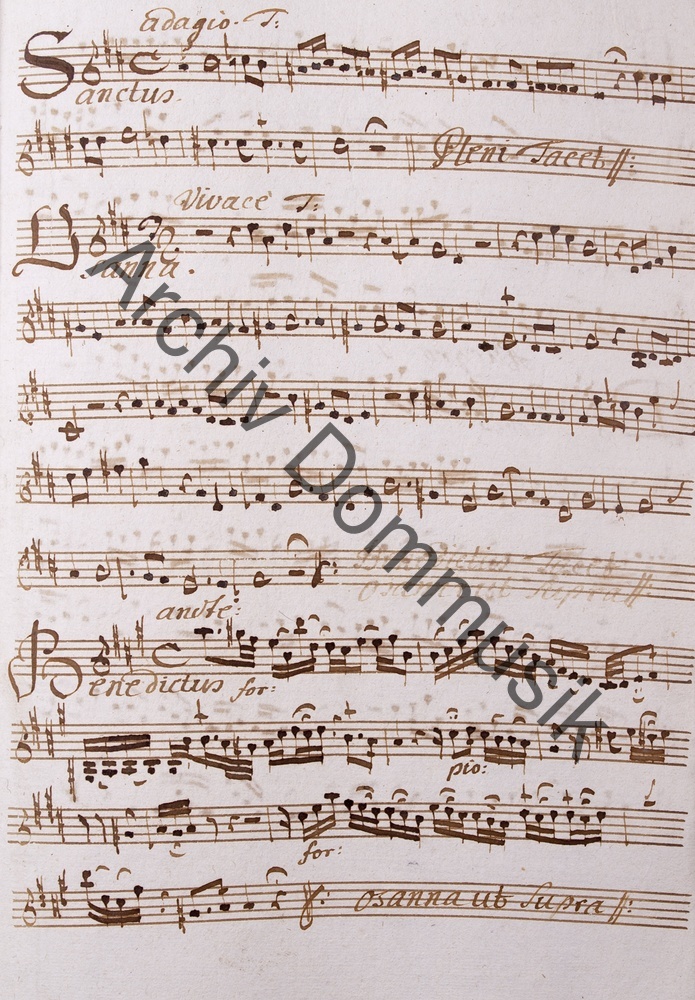 adagio. T:
Sanctus.
Pleni Tacet //:
Vivace T:
Osanna.
Benedictus Tacet
Osanna ut Supra //:
andte:
Benedictus for:
pio:
for:
Osanna ut Supra //:
Archiv Dommusik